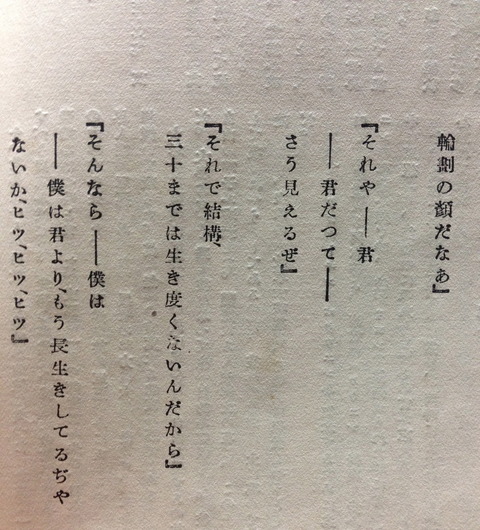 輪劃の顔だなあ』
『それや――君
――君だつて――
さう見えるぜ』
『それで結構、
三十までは生き度くないんだから』
『そんなら――僕は
――僕は君より、もう長生きしてるぢや
ないか、ヒツ、ヒツ、ヒツ』